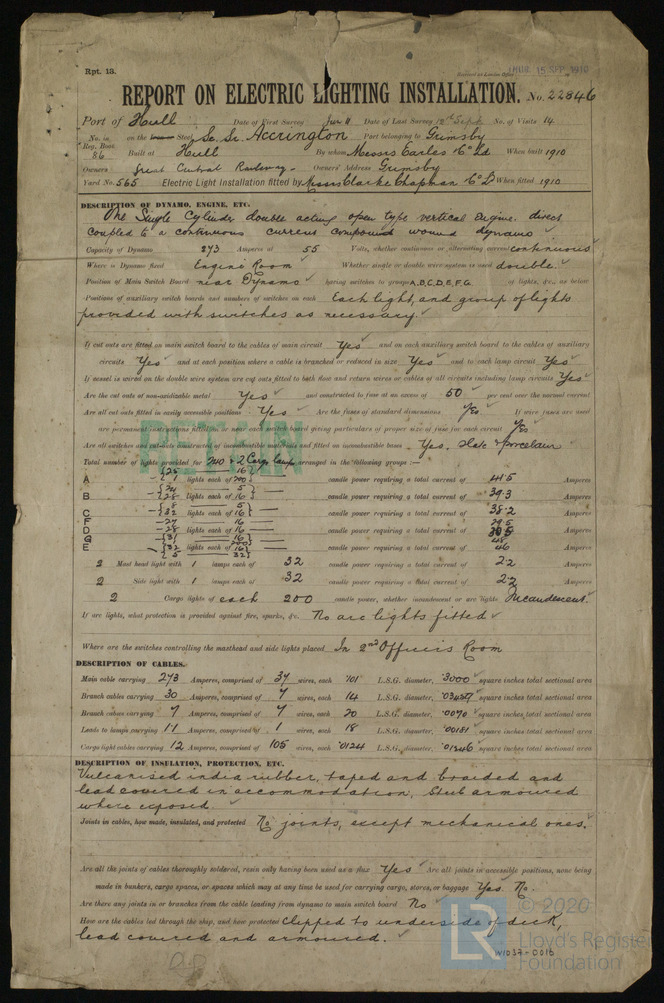 Rpt. 13.
THUR. 15 SEP. 1910
Received at London Office
REPORT ON ELECTRIC LIGHTING INSTALLATION. No. 22846
Port of Hull Date of First Survey Jan 11 Date of Last Survey 12th Sept No. of Visits 14
No. in Reg. Book 86 on the Steel Sc. Sr. Accrington Port belonging to Grimsby
Built at Hull By whom Messrs Earles & Co Ld When built 1910
Owners Great Central Railway. Owners' Address Grimsby
Yard No. 565 Electric Light Installation fitted by Messrs Clarke Chapman & Co Ld When fitted 1910
DESCRIPTION OF DYNAMO, ENGINE, ETC.
One Single Cylinder double acting open type vertical Engine direct
coupled to a continuous current compound wound dynamo
Capacity of Dynamo 273 Amperes at 55 Volts, whether continuous or alternating current continuous
Where is Dynamo fixed Engine Room Whether single or double wire system is used double
Position of Main Switch Board near Dynamo having switches to groups A,B,C,D,E,F,G. of lights, &c., as below
Positions of auxiliary switch boards and numbers of switches on each Each light, and group of lights
provided with switches as necessary.
If cut outs are fitted on main switch board to the cables of main circuit Yes and on each auxiliary switch board to the cables of auxiliary
circuits Yes and at each position where a cable is branched or reduced in size Yes and to each lamp circuit Yes
If vessel is wired on the double wire system are cut outs fitted to both flow and return wires or cables of all circuits including lamp circuits Yes
Are the cut outs of non-oxidizable metal Yes and constructed to fuse at an excess of 50 per cent over the normal current
Are all cut outs fitted in easily accessible positions Yes Are the fuses of standard dimensions Yes If wire fuses are used
are permanent instructions fitted on or near each switch board giving particulars of proper size of fuse for each circuit Yes
Are all switches and cut-outs constructed of incombustible materials and fitted on incombustible bases Yes, slate & porcelain
RETAIN
Total number of lights provided for 240 & 2 Cargo lamps arranged in the following groups :—
A lights each of candle power requiring a total current of 41.5 Amperes
B lights each of 16 candle power requiring a total current of 39.3 Amperes
C lights each of 16 candle power requiring a total current of 38.2 Amperes
F 27 16 29.5
D 28 lights each of 16 candle power requiring a total current of 30.5 Amperes
G 31 16
E 32 lights each of 16 candle power requiring a total current of 46 Amperes
2 Mast head light with 1 lamps each of 32 candle power requiring a total current of 2.2 Amperes
2 Side light with 1 lamps each of 32 candle power requiring a total current of 2.2 Amperes
2 Cargo lights of each 200 candle power, whether incandescent or arc lights Incandescent.
If arc lights, what protection is provided against fire, sparks, &c. No arc lights fitted
Where are the switches controlling the masthead and side lights placed In 2nd Officers Room
DESCRIPTION OF CABLES.
Main cable carrying 273 Amperes, comprised of 37 wires, each .101 L.S.G. diameter, .3000 square inches total sectional area
Branch cables carrying 30 Amperes, comprised of 7 wires, each 14 L.S.G. diameter, .03457 square inches total sectional area
Branch cables carrying 7 Amperes, comprised of 7 wires, each 20 L.S.G. diameter, .0070 square inches total sectional area
Leads to lamps carrying 1.1 Amperes, comprised of 1 wires, each 18 L.S.G. diameter, .00181 square inches total sectional area
Cargo light cables carrying 12 Amperes, comprised of 105 wires, each .0124 L.S.G. diameter, .01246 square inches total sectional area
DESCRIPTION OF INSULATION, PROTECTION, ETC.
Vulcanised india rubber, taped and braided and
lead covered in accommodation. Steel armoured
where exposed.
Joints in cables, how made, insulated, and protected No joints, except mechanical ones.
Are all the joints of cables thoroughly soldered, resin only having been used as a flux Yes Are all joints in accessible positions, none being
made in bunkers, cargo spaces, or spaces which may at any time be used for carrying cargo, stores, or baggage Yes. No.
Are there any joints in or branches from the cable leading from dynamo to main switch board No
How are the cables led through the ship, and how protected Clipped to underside of deck,
lead covered and armoured.
© 2020
LR Lloyd's Register
Foundation
W1037-0016